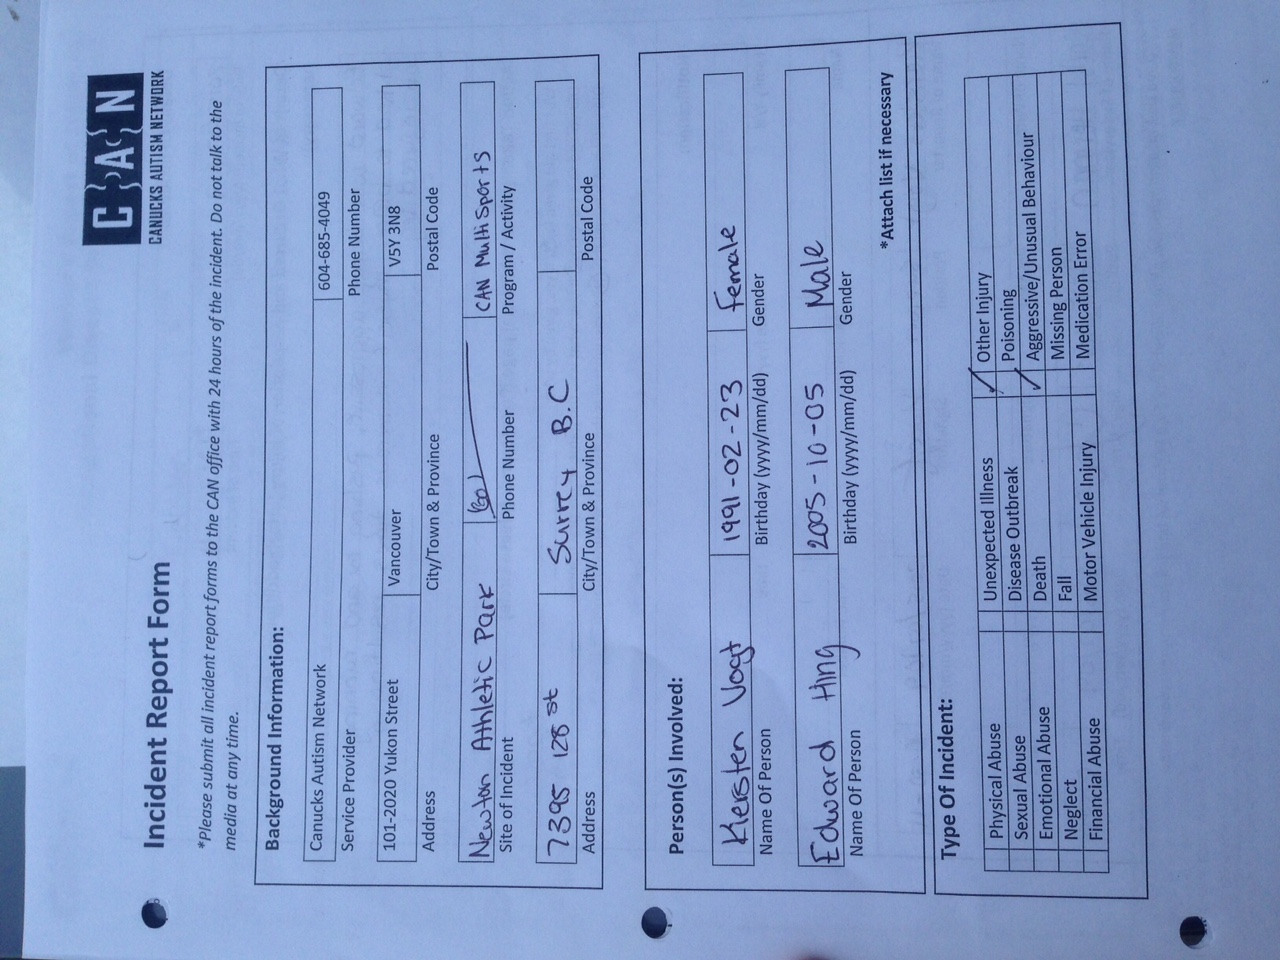 C A N
CANUCKS AUTISM NETWORK
Incident Report Form
*Please submit all incident report forms to the CAN office with 24 hours of the incident. Do not talk to the
media at any time.
Background Information:
Canucks Autism Network 604-685-4049
Service Provider Phone Number
101-2020 Yukon Street Vancouver V5Y 3N8
Address City/Town & Province Postal Code
Newton Athletic Park CAN MultiSports
Site of Incident Phone Number Program / Activity
7395 128 st Surrey B.C
Address City/Town & Province Postal Code
Person(s) Involved:
Kiersten Vogt 1991-02-23 Female
Name Of Person Birthday (yyyy/mm/dd) Gender
Edward Hing 2005-10-05 Male
Name Of Person Birthday (yyyy/mm/dd) Gender
*Attach list if necessary
Type Of Incident:
Physical Abuse Unexpected Illness ✓ Other Injury
Sexual Abuse Disease Outbreak Poisoning
Emotional Abuse Death ✓ Aggressive/Unusual Behaviour
Neglect Fall Missing Person
Financial Abuse Motor Vehicle Injury Medication Error